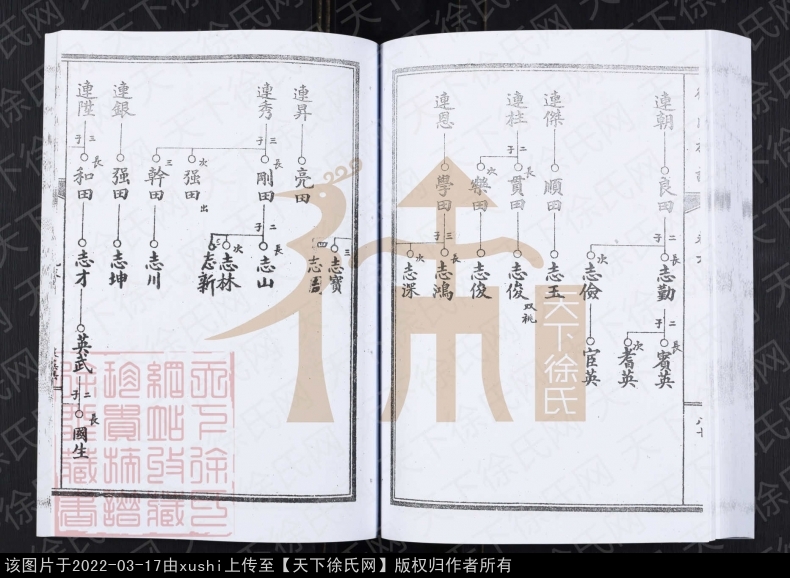 連朝
良田
二子
長
志勤
二子
長
賓英
次
耆英
次
志儉
宦英
連傑
順田
志玉
連柱
二子
長
貫田
志俊
双祧
次
樂田
志俊
連恩
學田
三子
長
志鴻
次
志深
三
志寶
四
志周
連昇
亮田
連秀
三子
長
剛田
二子
長
志山
次
志林
三
志新
次
强田
出
三
幹田
志川
連銀
强田
志坤
連陞
三子
長
和田
志才
英武
二子
長
國生
天下徐氏
天下徐氏网
该图片于2022-03-17由xushi上传至【天下徐氏网】版权归作者所有